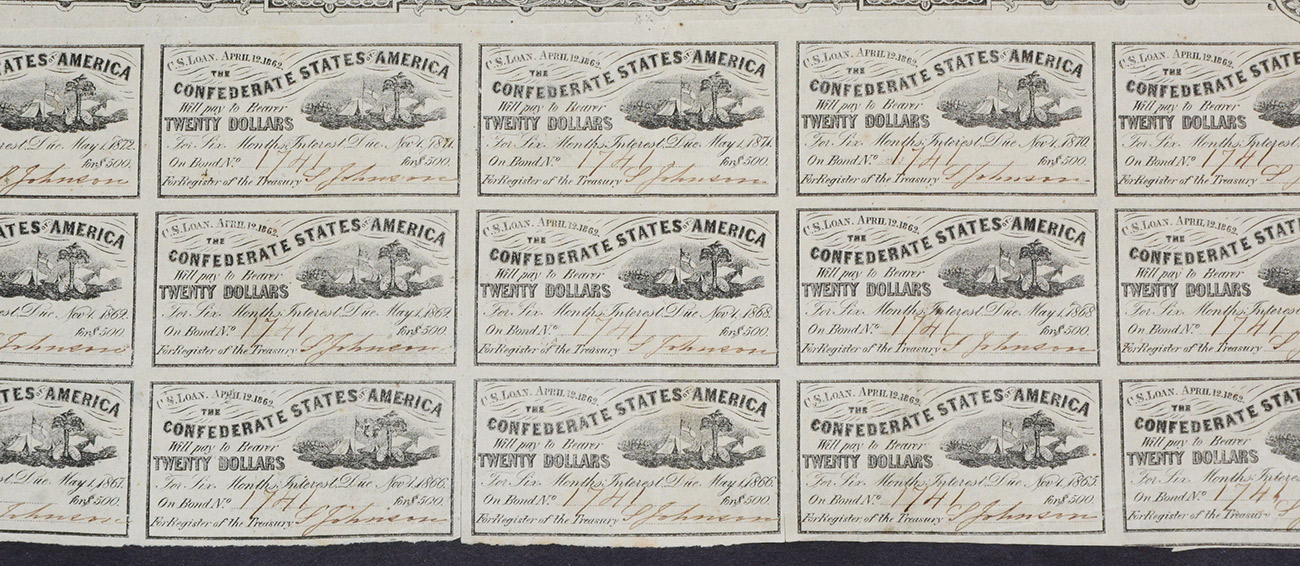 TATES OF AMERICA
rest, Due May 1, 1872.
for $500.
Johnson
C.S. LOAN. APRIL 12. 1862.
THE
CONFEDERATE STATES OF AMERICA
Will pay to Bearer
TWENTY DOLLARS
For Six Months, Interest, Due Nov 1, 1871.
On Bond No 1741 for $500.
For Register of the Treasury S Johnson
C.S. LOAN. APRIL 12. 1862.
THE
CONFEDERATE STATES OF AMERICA
Will pay to Bearer
TWENTY DOLLARS
For Six Months, Interest, Due May 1, 1871.
On Bond No 1741 for $500.
For Register of the Treasury S Johnson
C.S. LOAN. APRIL 12. 1862.
THE
CONFEDERATE STATES OF AMERICA
Will pay to Bearer
TWENTY DOLLARS
For Six Months, Interest, Due Nov 1, 1870.
On Bond No 1741 for $500.
For Register of the Treasury S Johnson
C.S. LOAN. APRIL 12. 1862.
THE
CONFEDERATE STATES
Will pay to Bearer
TWENTY DOLLARS
For Six Months, Interes
On Bond No 1741
For Register of the Treasury S
TATES OF AMERICA
rest, Due Nov 1, 1869.
for $500.
Johnson
C.S. LOAN. APRIL 12. 1862.
THE
CONFEDERATE STATES OF AMERICA
Will pay to Bearer
TWENTY DOLLARS
For Six Months, Interest, Due May 1, 1869.
On Bond No 1741 for $500.
For Register of the Treasury S Johnson
C.S. LOAN. APRIL 12. 1862.
THE
CONFEDERATE STATES OF AMERICA
Will pay to Bearer
TWENTY DOLLARS
For Six Months, Interest, Due Nov 1, 1868.
On Bond No 1741 for $500.
For Register of the Treasury S Johnson
C.S. LOAN. APRIL 12. 1862.
THE
CONFEDERATE STATES OF AMERICA
Will pay to Bearer
TWENTY DOLLARS
For Six Months, Interest, Due May 1, 1868.
On Bond No 1741 for $500.
For Register of the Treasury S Johnson
C.S. LOAN. APRIL 12. 1862.
THE
CONFEDERATE STAT
Will pay to Bearer
TWENTY DOLLARS
For Six Months, Inter
On Bond No 1741
For Register of the Treasury S
TES OF AMERICA
est, Due May 1, 1867.
for $500.
Johnson
C.S. LOAN. APRIL 12. 1862.
THE
CONFEDERATE STATES OF AMERICA
Will pay to Bearer
TWENTY DOLLARS
For Six Months, Interest, Due Nov 1, 1866.
On Bond No 1741 for $500.
For Register of the Treasury S Johnson
C.S. LOAN. APRIL 12. 1862.
THE
CONFEDERATE STATES OF AMERICA
Will pay to Bearer
TWENTY DOLLARS
For Six Months, Interest, Due May 1, 1866.
On Bond No 1741 for $500.
For Register of the Treasury S Johnson
C.S. LOAN. APRIL 12. 1862.
THE
CONFEDERATE STATES OF AMERICA
Will pay to Bearer
TWENTY DOLLARS
For Six Months, Interest, Due Nov 1, 1865.
On Bond No 1741 for $500.
For Register of the Treasury S Johnson
C.S. LOAN. APRIL 12. 1862.
THE
CONFEDERATE STAT
Will pay to Bearer
TWENTY DOLLARS
For Six Months, Inter
On Bond No 1741
For Register of the Treasury S